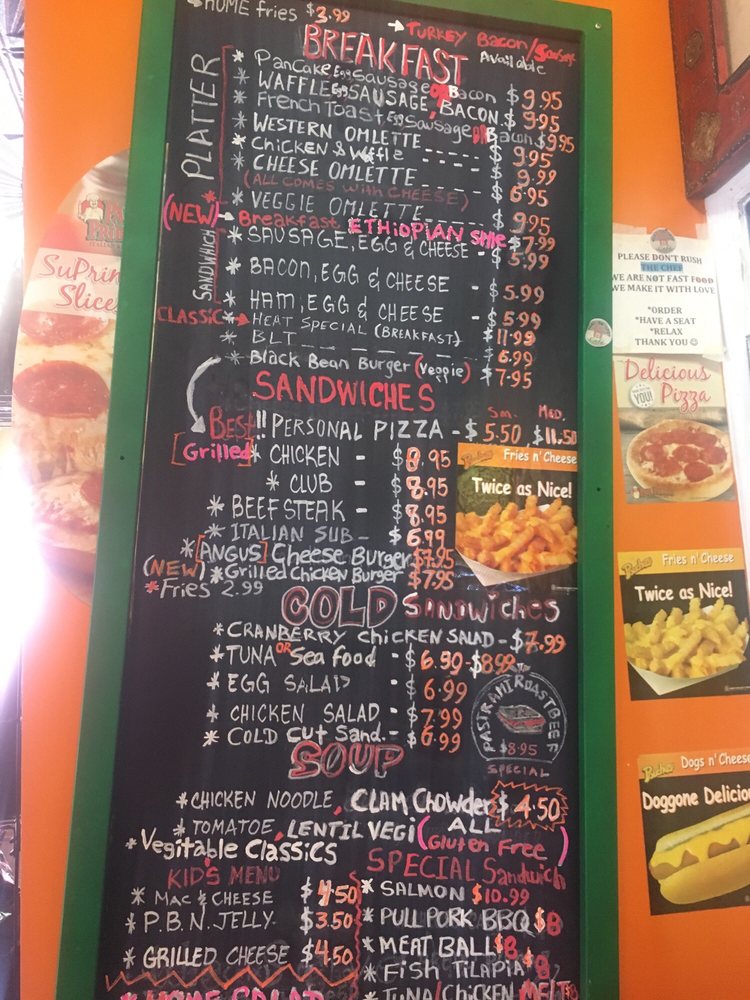 HOME fries $3.99
→TURKEY Bacon/Sausage
Available
BREAKFAST
PLATTER
* Pancake Egg Sausage OR Bacon $9.95
* WAFFLE Egg SAUSAGE, BACON $9.95
* French Toast Egg Sausage OR Bacon $9.95
* WESTERN OMLETTE $9.95
* Chicken & Waffle $9.99
* CHEESE OMLETTE $6.95
(ALL COMES with CHEESE)
* VEGGIE OMLETTE $9.95
(NEW) Breakfast ETHIOPIAN Style $7.99
SANDWHICH
* SAUSAGE, EGG & CHEESE - $5.99
* BACON, EGG & CHEESE - $5.99
* HAM, EGG & CHEESE - $5.99
CLASSIC → HEAT SPECIAL (BREAKFAST) $11.99
* BLT $6.99
* Black Bean Burger (Veggie) $7.95
SANDWICHES
Sm. MED.
BEST !! PERSONAL PIZZA - $5.50, $11.50
[Grilled] * CHICKEN - $8.95
* CLUB - $8.95
* BEEF STEAK - $8.95
* ITALIAN SUB - $6.99
* [ANGUS] Cheese Burger $7.95
(NEW) * Grilled Chicken Burger $7.95
* Fries 2.99
COLD SANDWICHES
* CRANBERRY Chicken SALAD - $7.99
* TUNA OR Sea food - $6.99 - $8.99
* EGG SALAD - $6.99
* CHICKEN SALAD - $7.99
* COLD CUT Sand. - $6.99
PASTRAMI ROASTBEEF
$8.95
SPECIAL
SOUP
* CHICKEN NOODLE, CLAM Chowder $4.50
* TOMATOE, LENTIL VEGI (ALL Gluten Free)
* Vegitable Classics
KID'S MENU
* MAC & CHEESE $4.50
* P.B.N. JELLY $3.50
* GRILLED CHEESE $4.50
SPECIAL Sandwich
* SALMON $10.99
* PULL PORK BBQ $8
* MEAT BALL $8
* Fish TILAPIA $8
* TUNA/CHICKEN MELT $8
SuPrim
Slice
PLEASE DON'T RUSH
THE CHEF
WE ARE NOT FAST FOOD
WE MAKE IT WITH LOVE
*ORDER
*HAVE A SEAT
*RELAX
THANK YOU ☺
Delicious
Pizza
YOU!
Fries n' Cheese
Twice as Nice!
Fries n' Cheese
Twice as Nice!
Dogs n' Cheese
Doggone Delicio